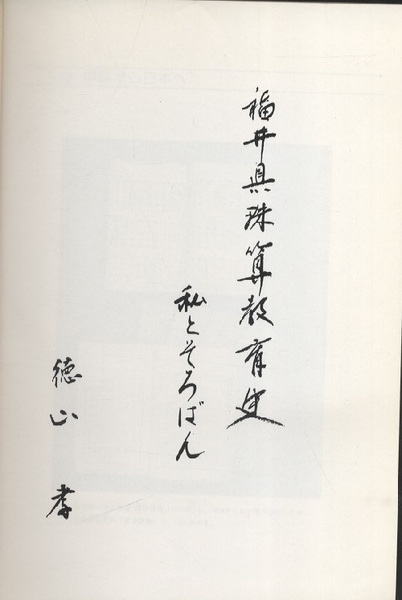 福井県珠算教育史
私とそろばん
徳山 孝